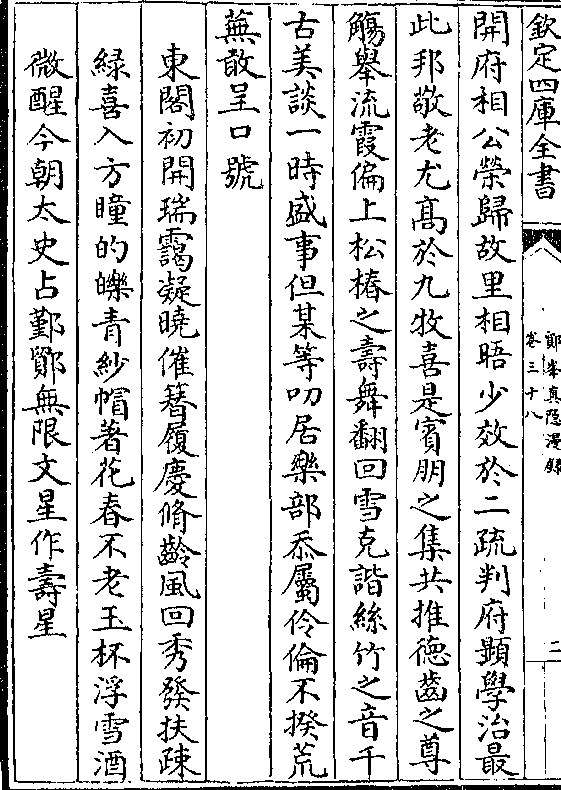 欽定四庫全書
鄮峯真隱漫録
卷三十八
二
開府相公榮歸故里相晤少效於二疏判府顯學治最
此邦敬老尤髙於九牧喜是賓朋之集共推徳齒之尊
觴舉流霞偏上松椿之壽舞翻回雪克諧絲竹之音千
古美談一時盛事但某等叨居樂部忝屬伶倫不揆荒
蕪敢呈口號
東閣初開瑞靄凝曉催簪履慶脩齡風回秀發扶疎
緑喜入方瞳的皪青紗帽著花春不老玉杯浮雪酒
微醒今朝太史占鄞鄮無限文星作壽星